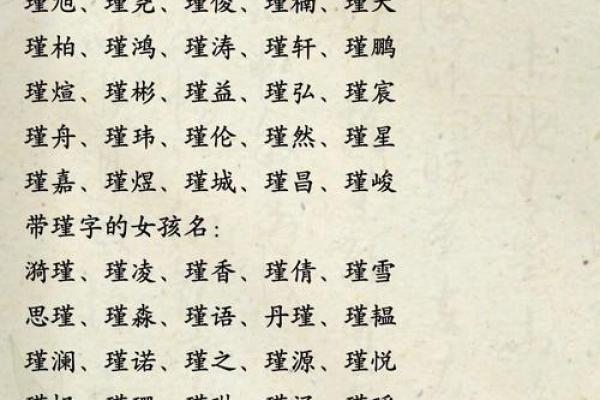 瑾旭、瑾尧、瑾俊、瑾楠、瑾天
瑾柏、瑾鸿、瑾涛、瑾轩、瑾鹏
瑾煊、瑾彬、瑾益、瑾弘、瑾宸
瑾舟、瑾玮、瑾伦、瑾然、瑾星
瑾嘉、瑾煜、瑾城、瑾昌、瑾峻
带瑾字的女孩名：
漪瑾、瑾凌、瑾香、瑾倩、瑾雪
思瑾、瑾淼、瑾语、丹瑾、瑾韫
瑾澜、瑾诺、瑾之、瑾源、瑾悦